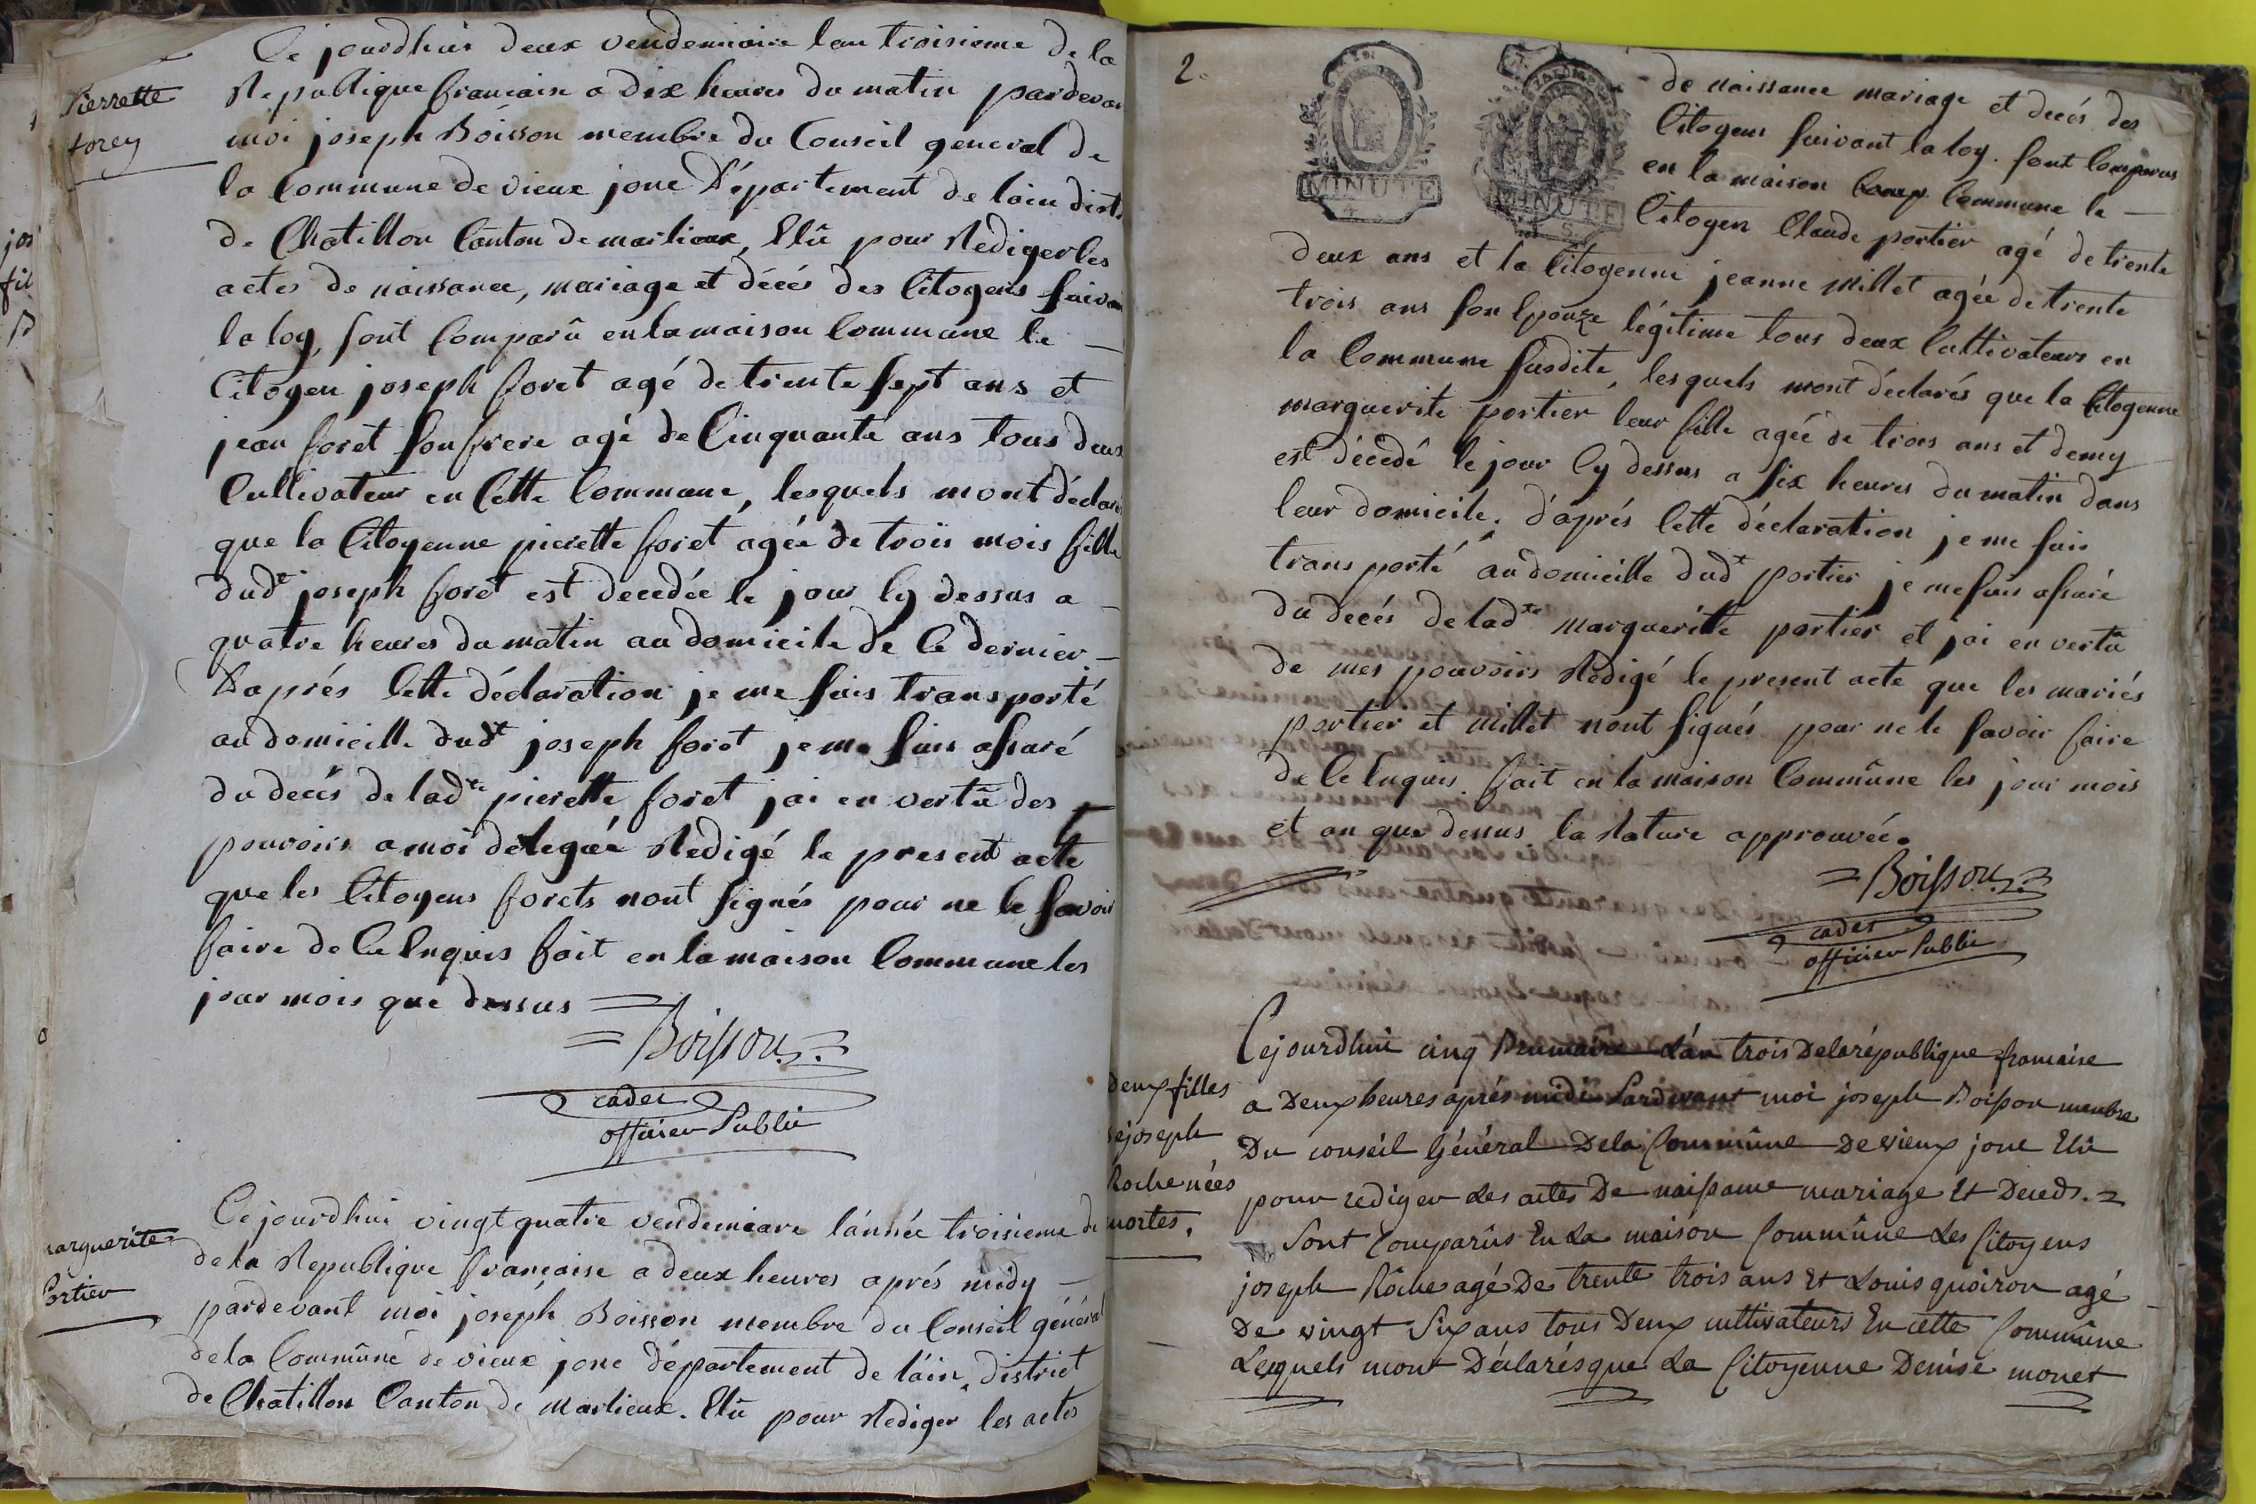 Ce jourdhui deux vendemiaire lan troisieme de la
Pierrette
Republique francaise a dix heures du matin pardevan
forey
moi joseph Boisson membre du Conseil general de
la Commune de vieux jonc Département de lain distt
de Chatillon Canton de marlieux, Elû pour Rediger les
actes de naissance, mariage et décés des Citoyens suivan
la loy, sont Comparû en la maison Commune le —
Citoyen joseph foret agé de trente sept ans et
jean foret son frere agé de Cinquante ans tous deux
Cultivateur en Cette Commune, lesquels mont déclarés
que la Citoyenne pierette foret agée de trois mois fille
dudt joseph foret est decedée le jour Cy dessus a —
quatre heures du matin au domicile de Ce dernier. —
D'aprés Cette déclaration je me suis transporté
au domicille dudt joseph foret je me suis assuré
du decés de ladte pierette foret jai en vertû des —
pouvoirs a moi deleguée Redigé le present acte
que les Citoyens forets nont signés pour ne le savoir
faire de Ce Enquis fait en la maison Commune les
jour mois que dessus =
= Boisson
cadet
officier Public
Ce jourdhui vingt quatre vendemiaire lánnée troisieme de
marguerite
de la Republique française a deux heures aprés midy —
Portier
pardevant moi joseph Boisson membre du Conseil général
de la Commûne de vieux jonc département de láin, district
de Chatillon Canton de marlieux. Elû pour Rediger les actes
2.
MINUTE
MINUTE
de naissance mariage et decés des
Citoyens suivant la loy. sont Comparus
en la maison Comp Commune le —
Citoyen Claude portier agé de trente
deux ans et la Citoyenne jeanne Millet agée de trente
trois ans son Epouze légitime tous deux Cultivateurs en
la Commune susdite, lesquels mont déclarés que la Citoyenne
marguerite portier leur fille agée de trois ans et demy
est décedé le jour Cy dessus a six heures du matin dans
leur domicile. d'aprés Cette déclaration je me suis
transporté au domicille dudt portier je me suis assuré
du decés de ladte marguerite portier et jai en vertû
de mes pouvoirs Redigé le present acte que les mariés
portier et millet nont signés pour ne le savoir faire
de Ce Enquis. fait en la maison Commûne les jour mois
et an que dessus la Rature approuvée.
= Boisson
cadet
officier Public
Cejourdhui cinq Brumaire l'án trois de la république francaise
deux filles
a Deux heures aprés midi Pardevant moi joseph Boisson membre
de joseph
Du conseil Général Dela Commûne De vieux jonc Elû
Roche nées
pour rediger les actes De naissance mariage Et Deceds. =
mortes.
Sont Comparûs En La maison Commûne Les Citoyens
joseph Rôche agé De trente trois ans Et Louis quoiron agé
De vingt Six ans tous Deux cultivateurs En cette Commûne
Lesquels mont Déclarés que La Citoyenne Denise monet